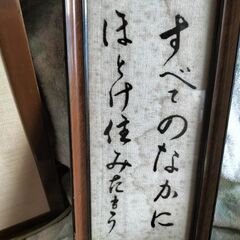 すべてのなかに
ほとけ住みたもう